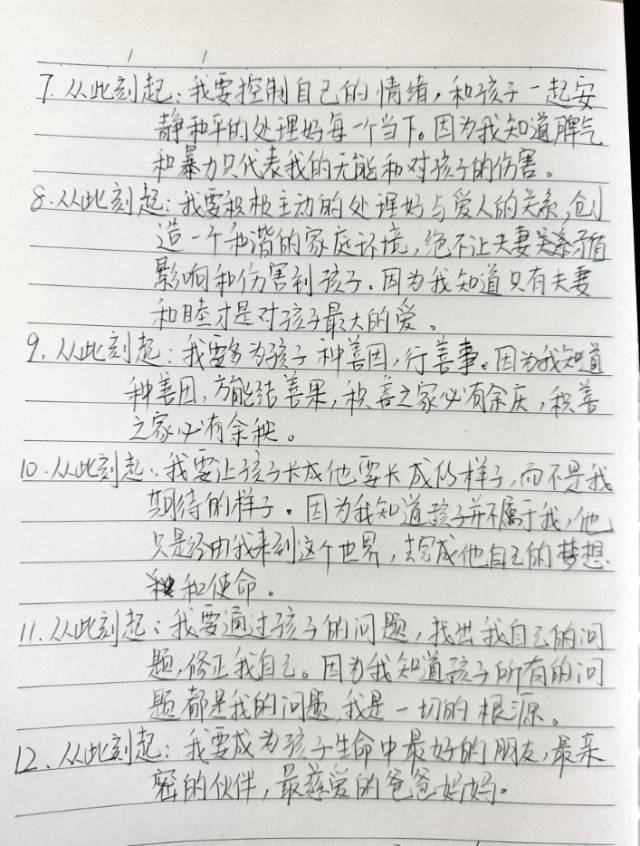 7. 从此刻起：我要控制自己的情绪，和孩子一起安
静和平的处理好每一个当下。因为我知道脾气
和暴力只代表我的无能和对孩子的伤害。
8. 从此刻起：我要积极主动的处理好与爱人的关系，创
造一个和谐的家庭环境，绝不让夫妻关系矛盾
影响和伤害到孩子。因为我知道只有夫妻
和睦才是对孩子最大的爱。
9. 从此刻起：我要多为孩子种善因，行善事。因为我知道
种善因，方能结善果，积善之家必有余庆，积善
之家必有余秧。
10. 从此刻起：我要让孩子长成他要长成的样子，而不是我
期待的样子。因为我知道孩子并不属于我，他
只是经由我来到这个世界，去完成他自己的梦想
和使命。
11. 从此刻起：我要通过孩子的问题，找出我自己的问
题，修正我自己。因为我知道孩子所有的问
题都是我的问题，我是一切的根源。
12. 从此刻起：我要成为孩子生命中最好的朋友，最亲
密的伙伴，最慈爱的爸爸妈妈。